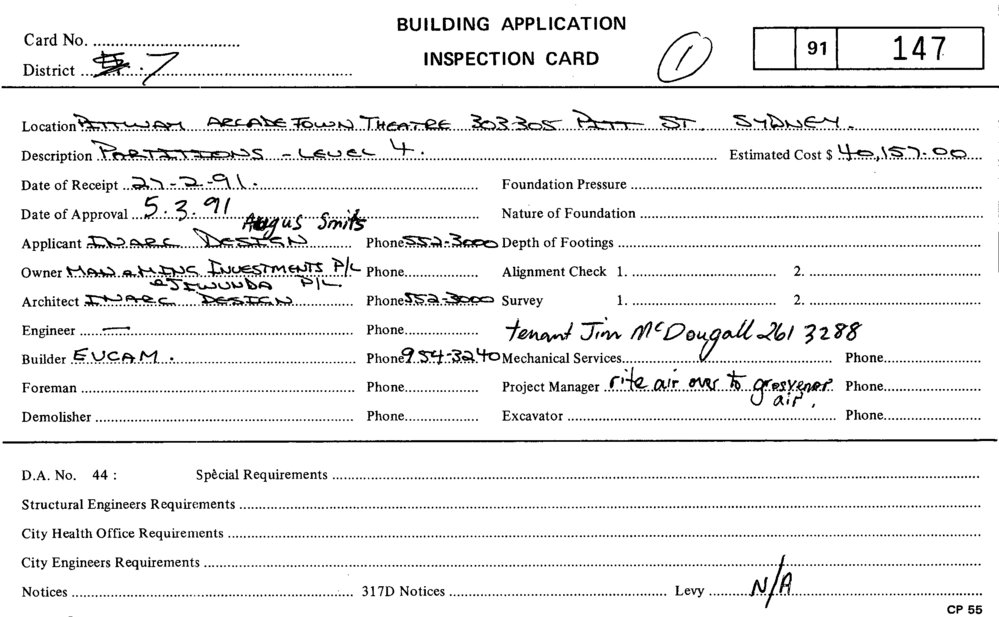 BUILDING APPLICATION
Card No. ...............................
INSPECTION CARD
1
91 147
District ....... 7 .......
Location PITTWAY ARCADE TOWN THEATRE 303-305 PITT ST. SYDNEY.
Description PARTITIONS - LEVEL 4. Estimated Cost $ 40,157.00
Date of Receipt 27-2-91. Foundation Pressure
Date of Approval 5.3.91 Nature of Foundation
Angus Smits
Applicant INARC DESIGN Phone 552-3000 Depth of Footings
Owner INVESTMENTS P/L Phone Alignment Check 1. 2.
& JIWUNDA P/L
Architect INARC DESIGN Phone 552-3000 Survey 1. 2.
Engineer — Phone tenant Jim McDougall 261 3288
Builder EUCAM. Phone 954-3240 Mechanical Services Phone
Foreman Phone Project Manager rite air over to grosvenor Phone
air.
Demolisher Phone Excavator Phone
D.A. No. 44 : Special Requirements
Structural Engineers Requirements
City Health Office Requirements
City Engineers Requirements
Notices 317D Notices Levy N/A
CP 55